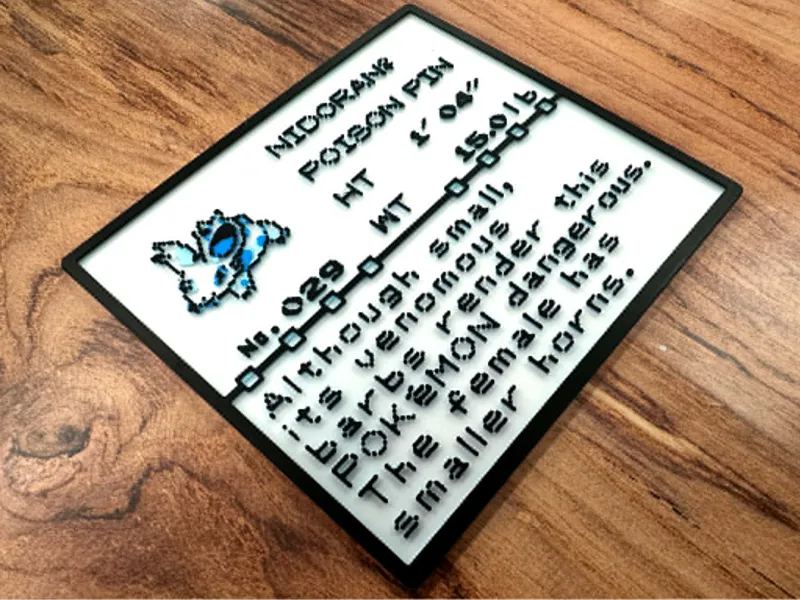 NIDORAN♀
POISON PIN
HT 1' 04"
WT 15.0lb
No. 029
Although small,
its venomous
barbs render this
POKéMON dangerous.
The female has
smaller horns.